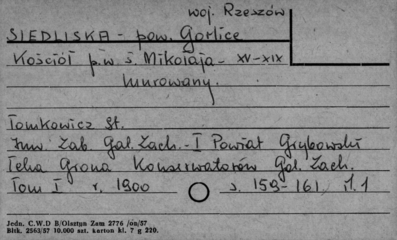 woj. Rzeszów
SIEDLISKA - pow. Gorlice
Kościół p.w ś. Mikołaja - XV-XIX
murowany.
Tomkowicz St.
Inw. Zab. Gal. Zach. - I Powiat Grybowski
Teka Grona Konserwatorów Gal. Zach.
Tom I r. 1900 s. 159-161, il. 1
Jedn. C.W.D B/Olsztyn Zam 2776 /on/57
Bltk. 2563/57 10.000 szt. karton kl. 7 g 220.